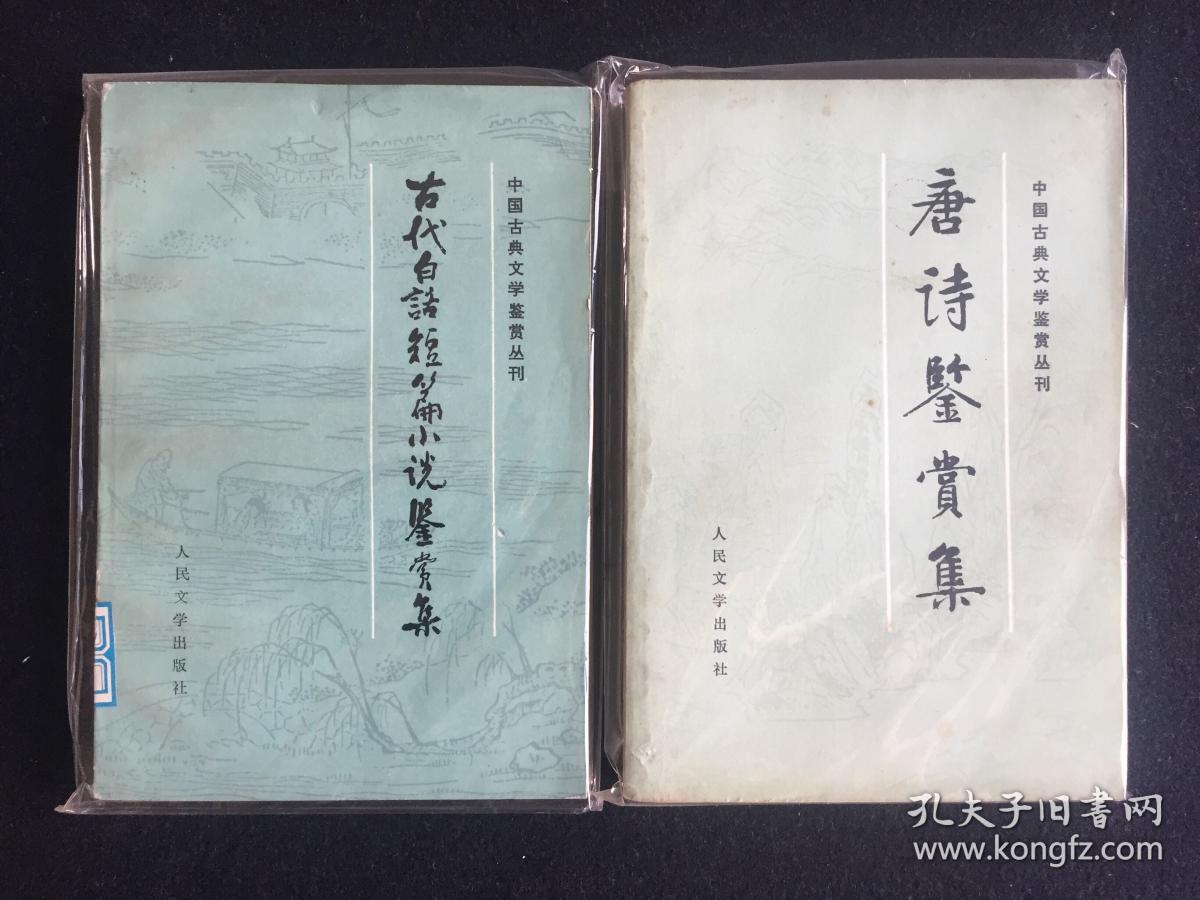 中国古典文学鉴赏丛刊
古代白話短篇小说鉴赏集
人民文学出版社
中国古典文学鉴赏丛刊
唐诗鑒賞集
人民文学出版社
孔夫子旧书网
www.kongfz.com